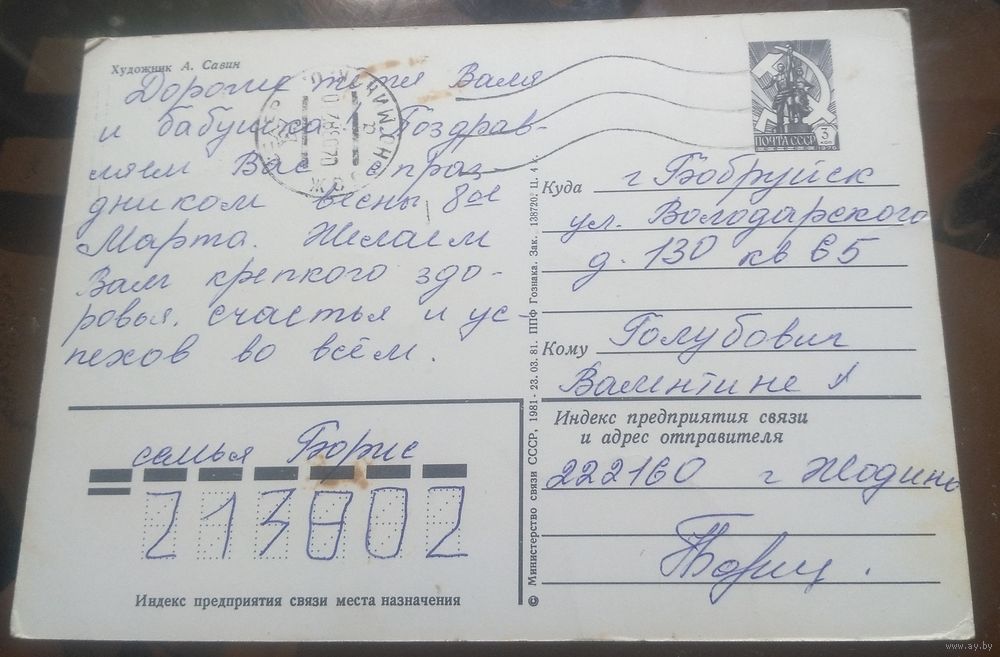 Художник А. Савин
Дорогие тётя Валя
и бабушка! Поздрав-
ляем Вас с праз-
дником весны 8ое
Марта. Желаем
Вам крепкого здо-
ровья, счастья и ус-
пехов во всём.
семья Борис
213802
Индекс предприятия связи места назначения
© Министерство связи СССР, 1981- 23. 03. 81. ППФ Гознака. Зак. 138720. Ц. 4 к.
ПОЧТА СССР
3
КОП
1976
Куда г Бобруйск
ул. Володарского
д. 130 кв 65
Кому Голубович
Валентине
Индекс предприятия связи
и адрес отправителя
222160 г Жодино
www.ay.by